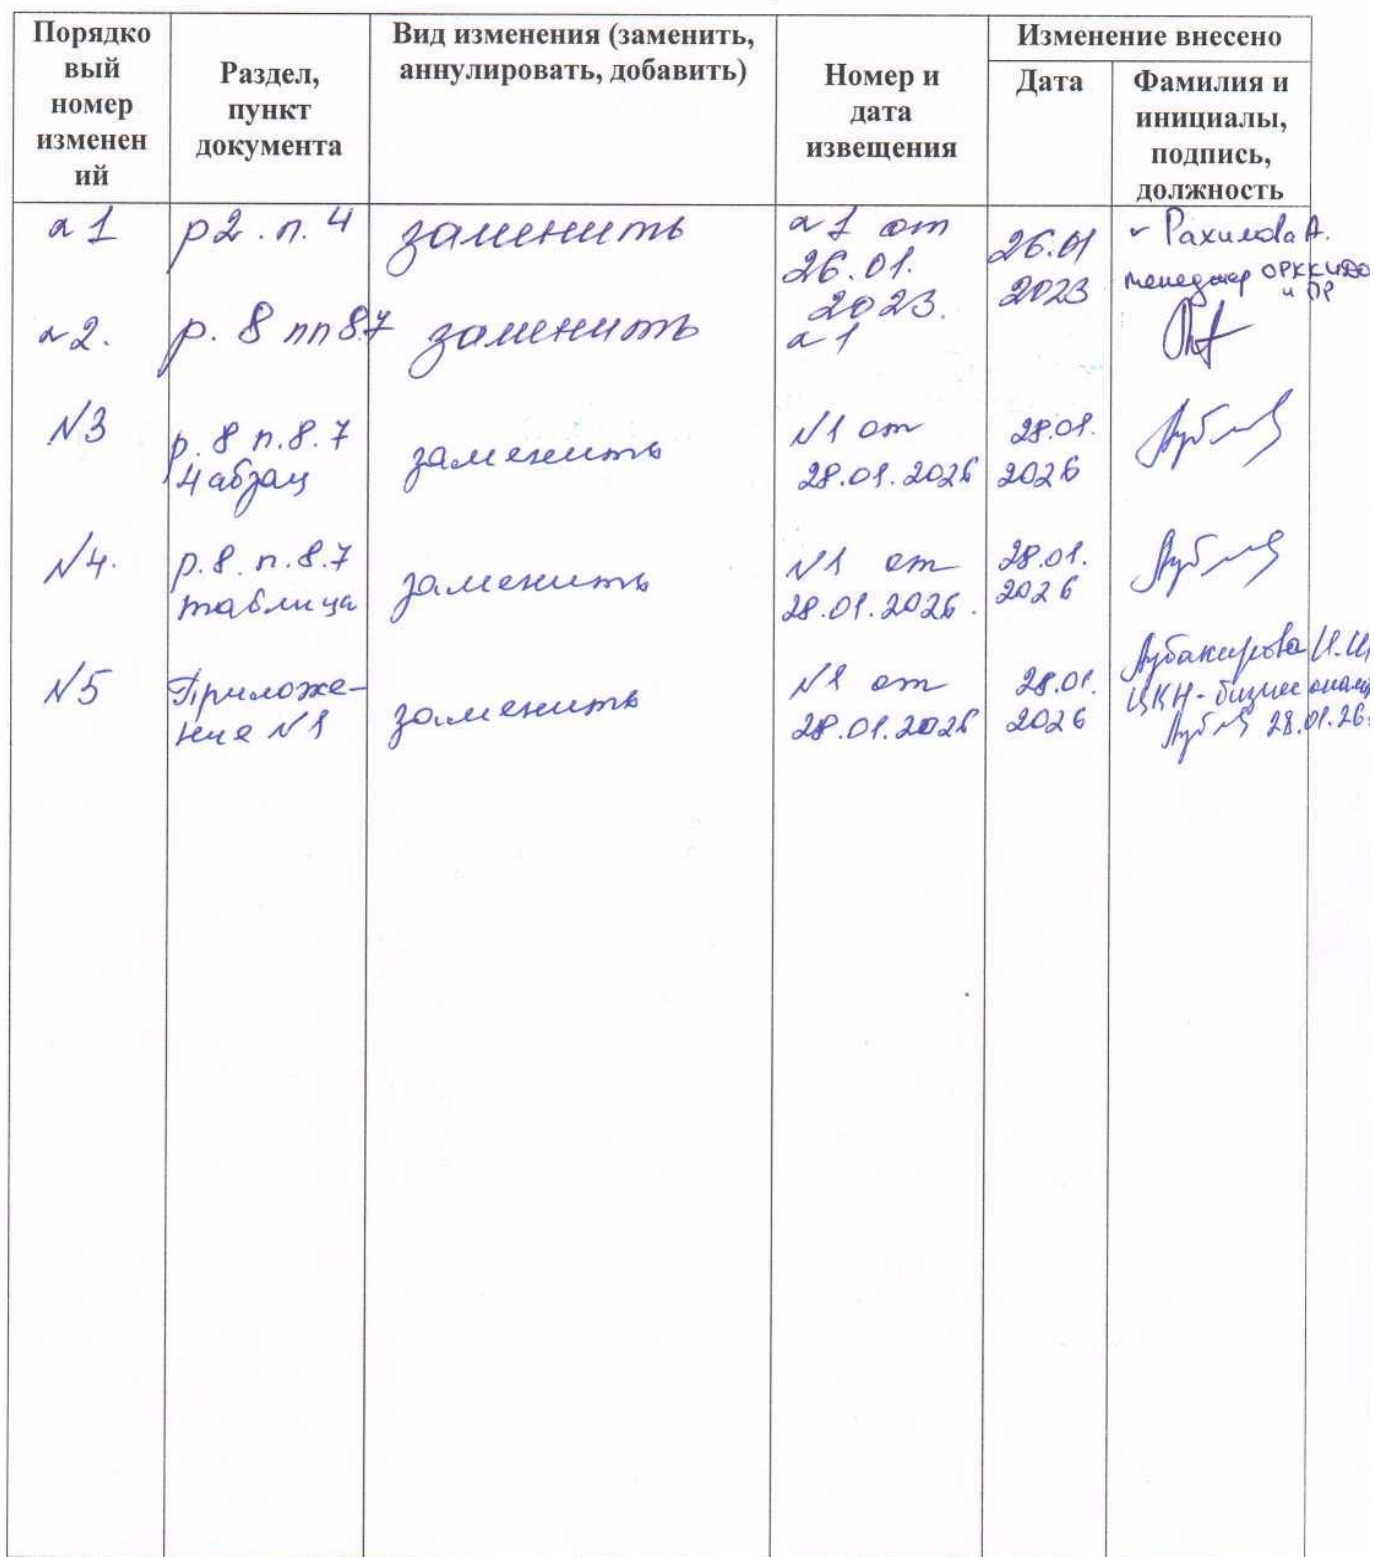 Порядко
вый
номер
изменен
ий
Раздел,
пункт
документа
Вид изменения (заменить,
аннулировать, добавить)
Номер и
дата
извещения
Изменение внесено
Дата
Фамилия и
инициалы,
подпись,
должность
№1
р2. п. 4
заменить
№1 от
26.01.
2023.
26.01
2023
Рахимова А.
менеджер ОРККИДО
и ПР
№2.
р. 8 пп 8.7
заменить
№1
№3
р. 8 п. 8.7
4 абзац
заменить
№1 от
28.01.2026
28.01.
2026
№4.
р. 8. п. 8.7
таблица
заменить
№1 от
28.01.2026.
28.01.
2026
№5
Приложе-
ние №1
заменить
№1 от
28.01.2026
28.01.
2026
Аубакирова И.И.
ЦКН-бизнес аналит
28.01.26.